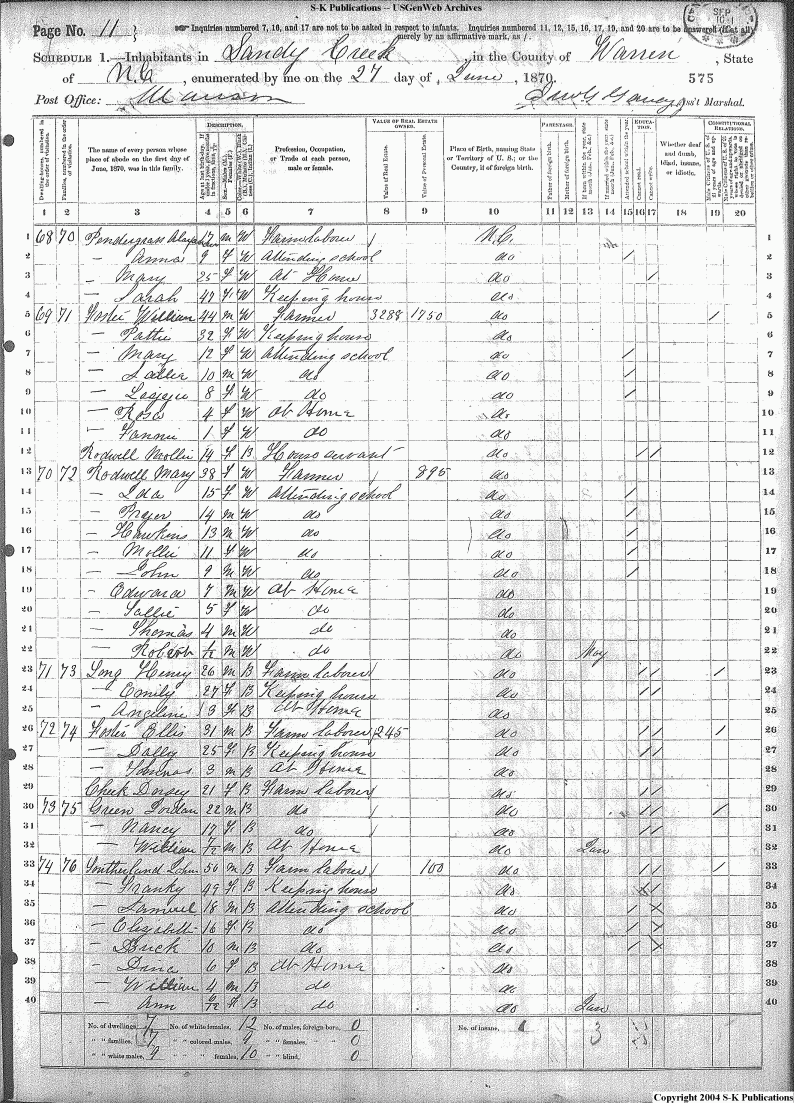 S-K Publications -- USGenWeb Archives
Page No. 11
Inquiries numbered 7, 16, and 17 are not to be asked in respect to infants. Inquiries numbered 11, 12, 15, 16, 17, 19, and 20 are to be answered (if at all) merely by an affirmative mark, as /.
SEP
SCHEDULE 1.—Inhabitants in Sandy Creek, in the County of Warren, State
of N.C., enumerated by me on the 27 day of June, 1870. 575
Post Office: Manson Ass't Marshal.
DESCRIPTION. VALUE OF REAL ESTATE OWNED. PARENTAGE. EDUCATION. CONSTITUTIONAL RELATIONS.
Dwelling-houses, numbered in the order of visitation.
Families, numbered in the order of visitation.
The name of every person whose place of abode on the first day of June, 1870, was in this family.
Profession, Occupation, or Trade of each person, male or female.
Value of Real Estate.
Value of Personal Estate.
Place of Birth, naming State or Territory of U. S.; or the Country, if of foreign birth.
Father of foreign birth.
Mother of foreign birth.
Attended school within the year.
Cannot read.
Cannot write.
Whether deaf and dumb, blind, insane, or idiotic.
1 2 3 4 5 6 7 8 9 10 11 12 13 14 15 16 17 18 19 20
1 68 70 Pendergrass 17 M W Farm labour / N.C. 1
2 — Anna 9 F W Attending school do / 2
3 — Mary 25 F W At Home do / 3
4 — Sarah 47 F W Keeping house do 4
5 69 71 Foster William 44 M W Farmer 3288 1750 do / 5
6 — Pattie 32 F W Keeping house do 6
7 — Mary 12 F W Attending school do / 7
8 — 10 M W do do / 8
9 — 8 F W do do / 9
10 — Rosa 4 F W At Home do 10
11 — Fannie 1 F W do do 11
12 Rodwell Mollie 14 F B House servant do / / 12
13 70 72 Rodwell Mary 38 F W Farmer 895 do 13
14 — Ida 15 F W Attending school do / 14
15 — 14 M W do do / 15
16 — Hawkins 13 M W do do / 16
17 — Mollie 11 F W do do / 17
18 — John 9 M W do do / 18
19 — Edward 7 M W At Home do 19
20 — Sallie 5 F W do do 20
21 — Thomas 4 M W do do 21
22 — Robert 1/12 M W do do May 22
23 71 73 Long Henry 26 M B Farm labour / do / / / 23
24 — Emily 27 F B Keeping house do / / 24
25 — Angeline 3 F B At Home do 25
26 72 74 Foster Ellis 31 M B Farm labour 245 do / / / 26
27 — Dolly 25 F B Keeping house do / / 27
28 — Thomas 3 M B At Home do 28
29 Cheek Dorsey 21 F B Farm labour do / / 29
30 73 75 Green Jordan 22 M B do / do / / / 30
31 — Nancy 17 F B do do / / 31
32 — William /12 M B At Home do Jan 32
33 74 76 Southerland John 50 M B Farm labour / 100 do / / / 33
34 — Franky 49 F B Keeping house do X / 34
35 — Samuel 18 M B Attending school do / X 35
36 — Elizabeth 16 F B do do / X 36
37 — Buck 10 M B do do / X 37
38 — 6 F B At Home do 38
39 — William 4 M B do do 39
40 — Ann /12 F B do do Jan 40
No. of dwellings, 7 No. of white females, 12 No. of males, foreign born, 0 No. of insane, 3
" " families, 7 " " colored males, 9 " " females, " " 0
" " white males, 9 " " " females, 10 " " blind, 0
Copyright 2004 S-K Publications